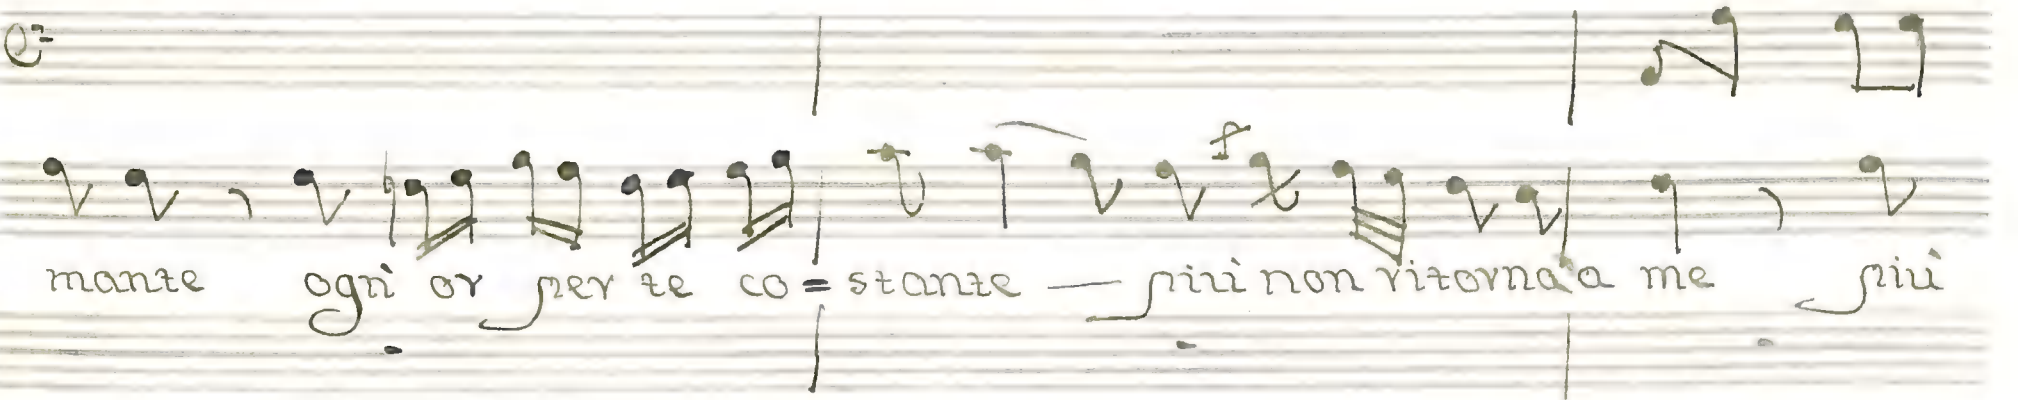 mante ognì or per te co=stante — più non ritorna a me più